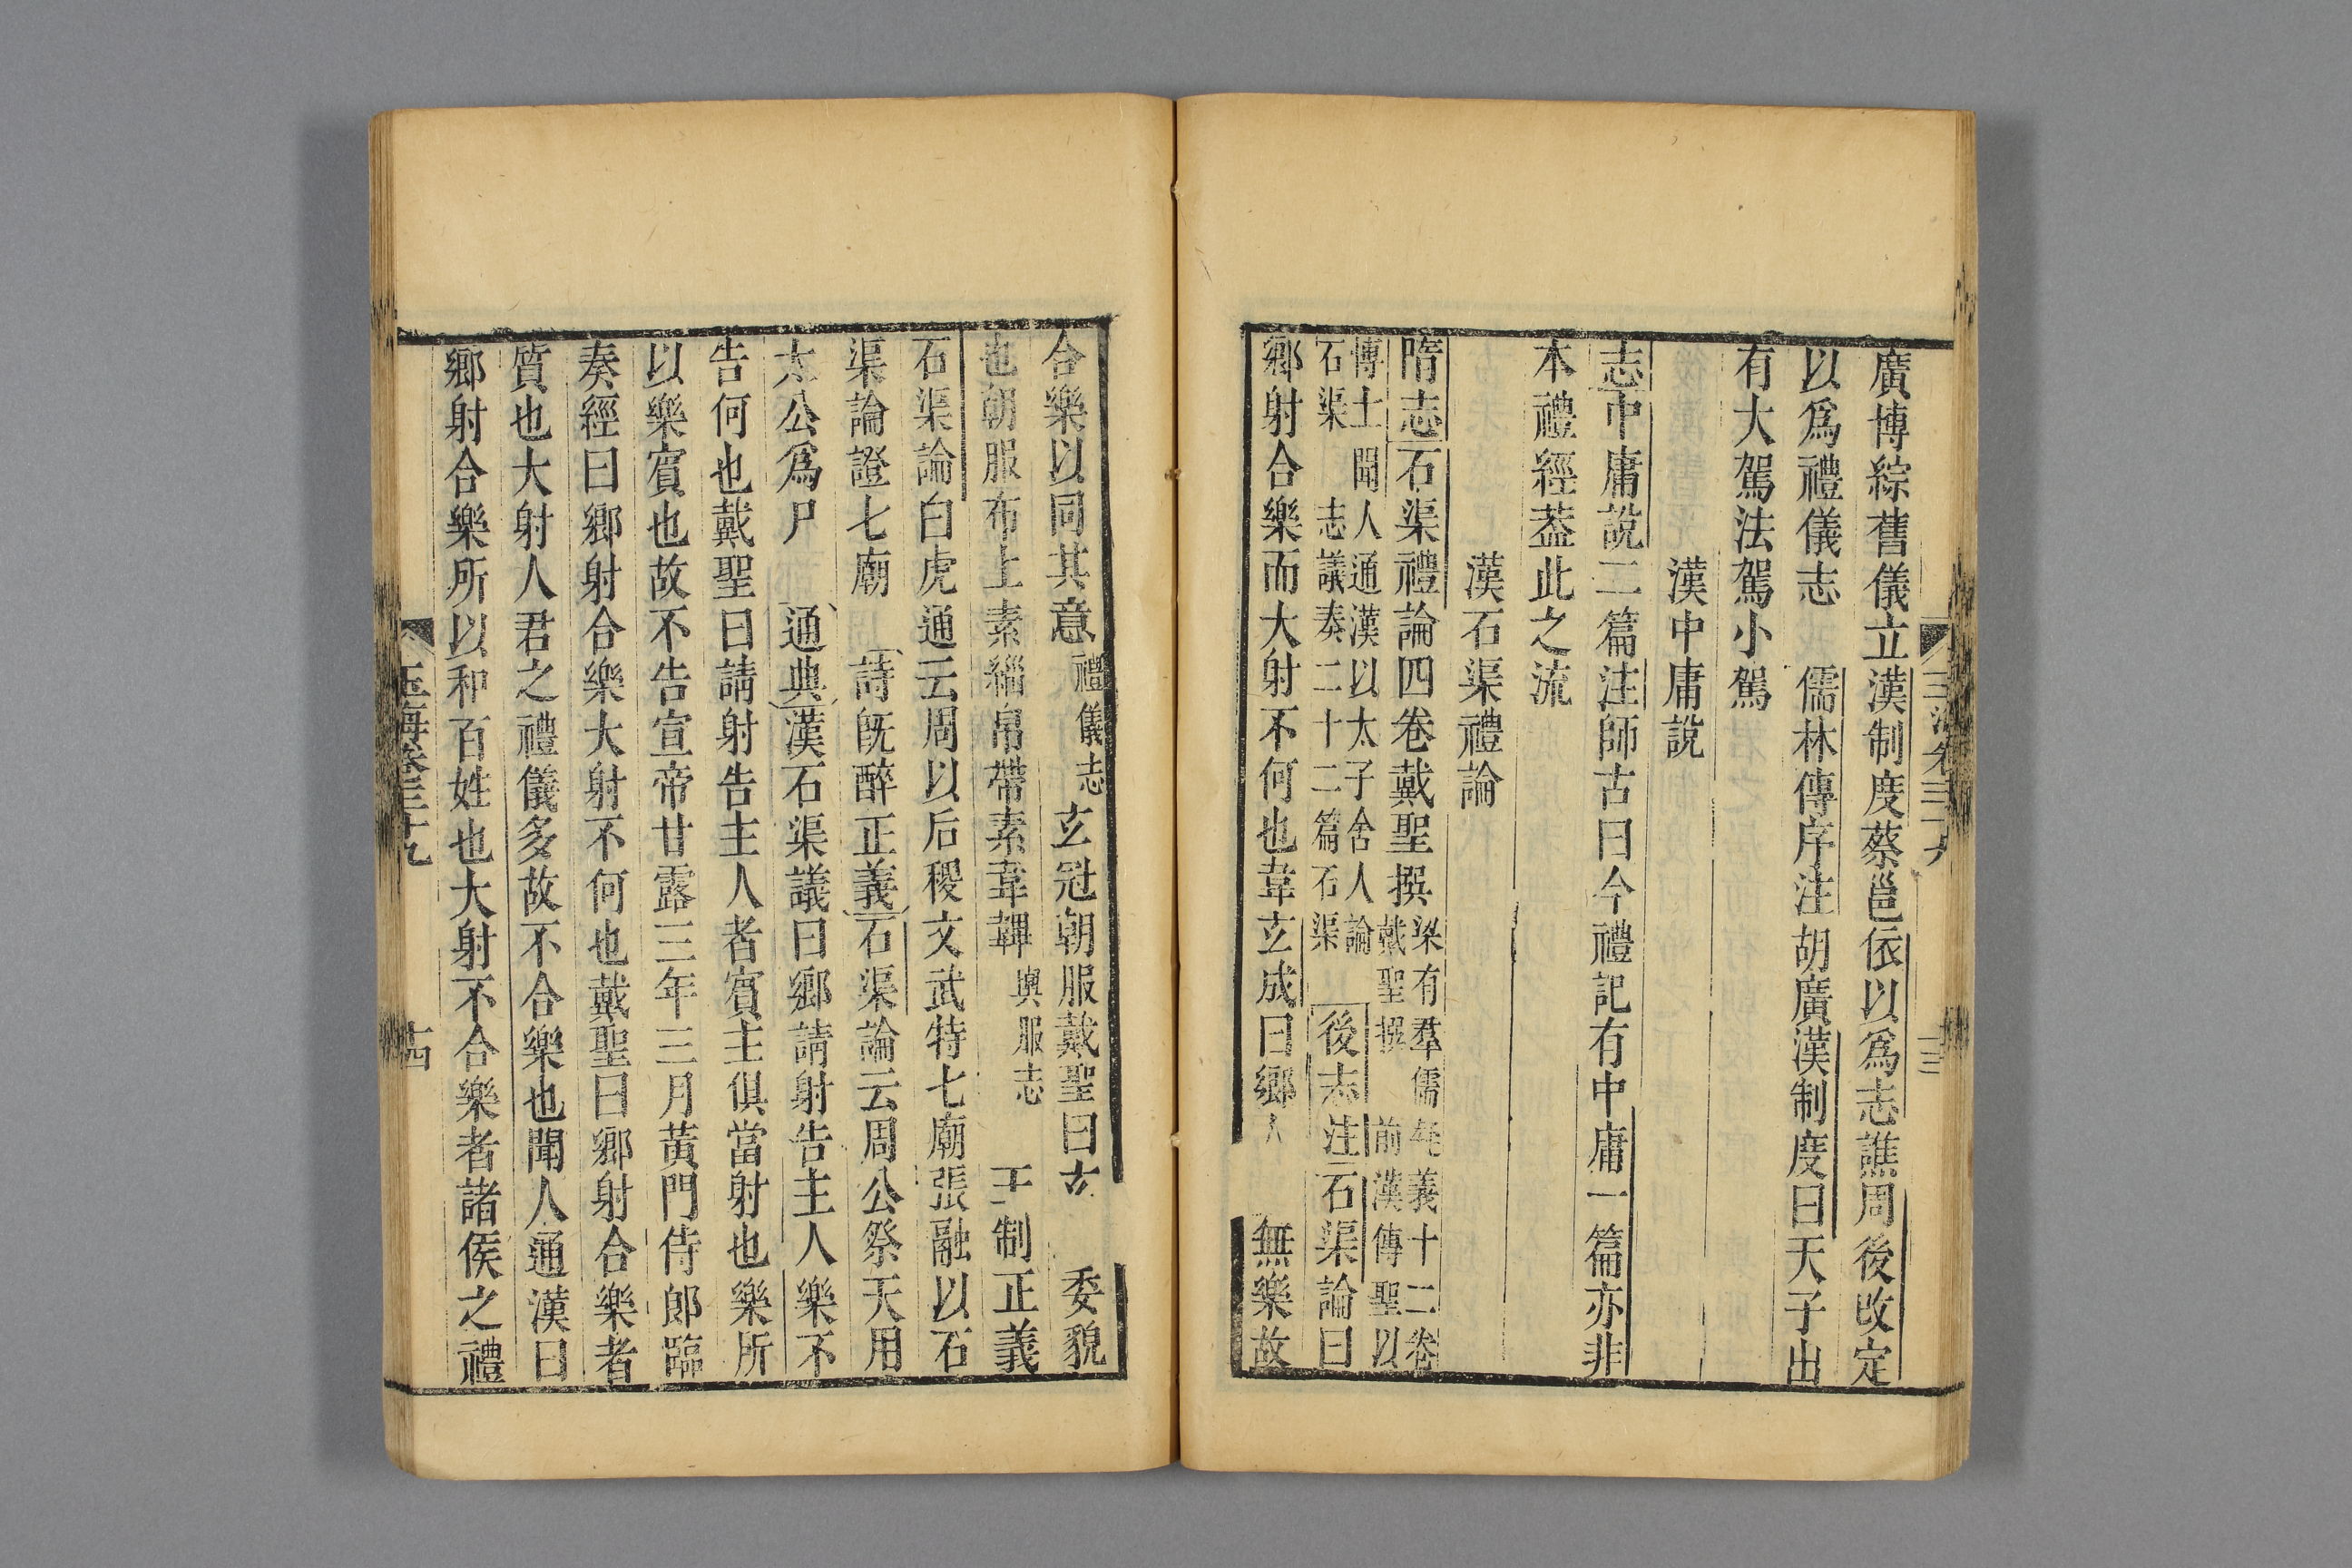 廣博綜舊儀立漢制度蔡邕依以爲志譙周後改定
以爲禮儀志　儒林傳序注胡廣漢制度曰天子出
有大駕法駕小駕
漢中庸說
志中庸說二篇注師古曰今禮記有中庸一篇亦非
本禮經葢此之流
漢石渠禮論
隋志石渠禮論四卷戴聖撰
梁有羣儒疑義十二卷
戴聖撰　前漢傳聖以
博士　聞人通漢以太子舍人論
石渠　志議奏二十二篇石渠
後志注石渠論曰
鄉射合樂而大射不何也韋玄成曰鄉人　無樂故
合樂以同其意
禮儀志
玄冠朝服戴聖曰玄　委貌
也朝服布上素緇帛帶素韋韠
輿服志
王制正義
石渠論白虎通云周以后稷文武特七廟張融以石
渠論證七廟　詩旣醉正義石渠論云周公祭天用
太公爲尸　通典漢石渠議曰鄉請射告主人樂不
告何也戴聖曰請射告主人者賓主俱當射也樂所
以樂賓也故不告宣帝甘露三年三月黃門侍郎臨
奏經曰鄉射合樂大射不何也戴聖曰鄉射合樂者
質也大射人君之禮儀多故不合樂也聞人通漢曰
鄉射合樂所以和百姓也大射不合樂者諸侯之禮
玉海卷三十九
十四